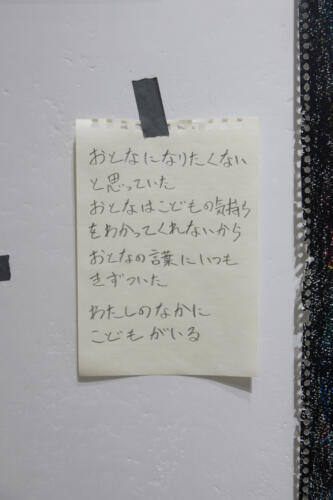 おとなになりたくない
と思っていた
おとなはこどもの気持ち
をわかってくれないから
おとなの言葉にいつも
きずついた
わたしのなかに
こどもがいる